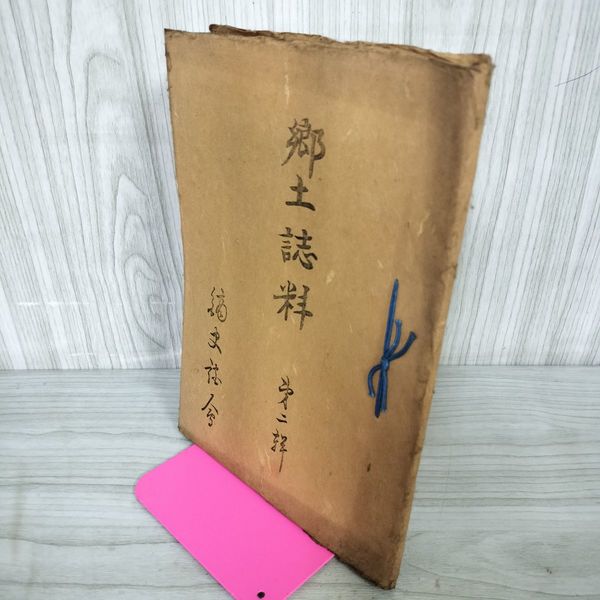 郷土誌料
第二輯
編史協会